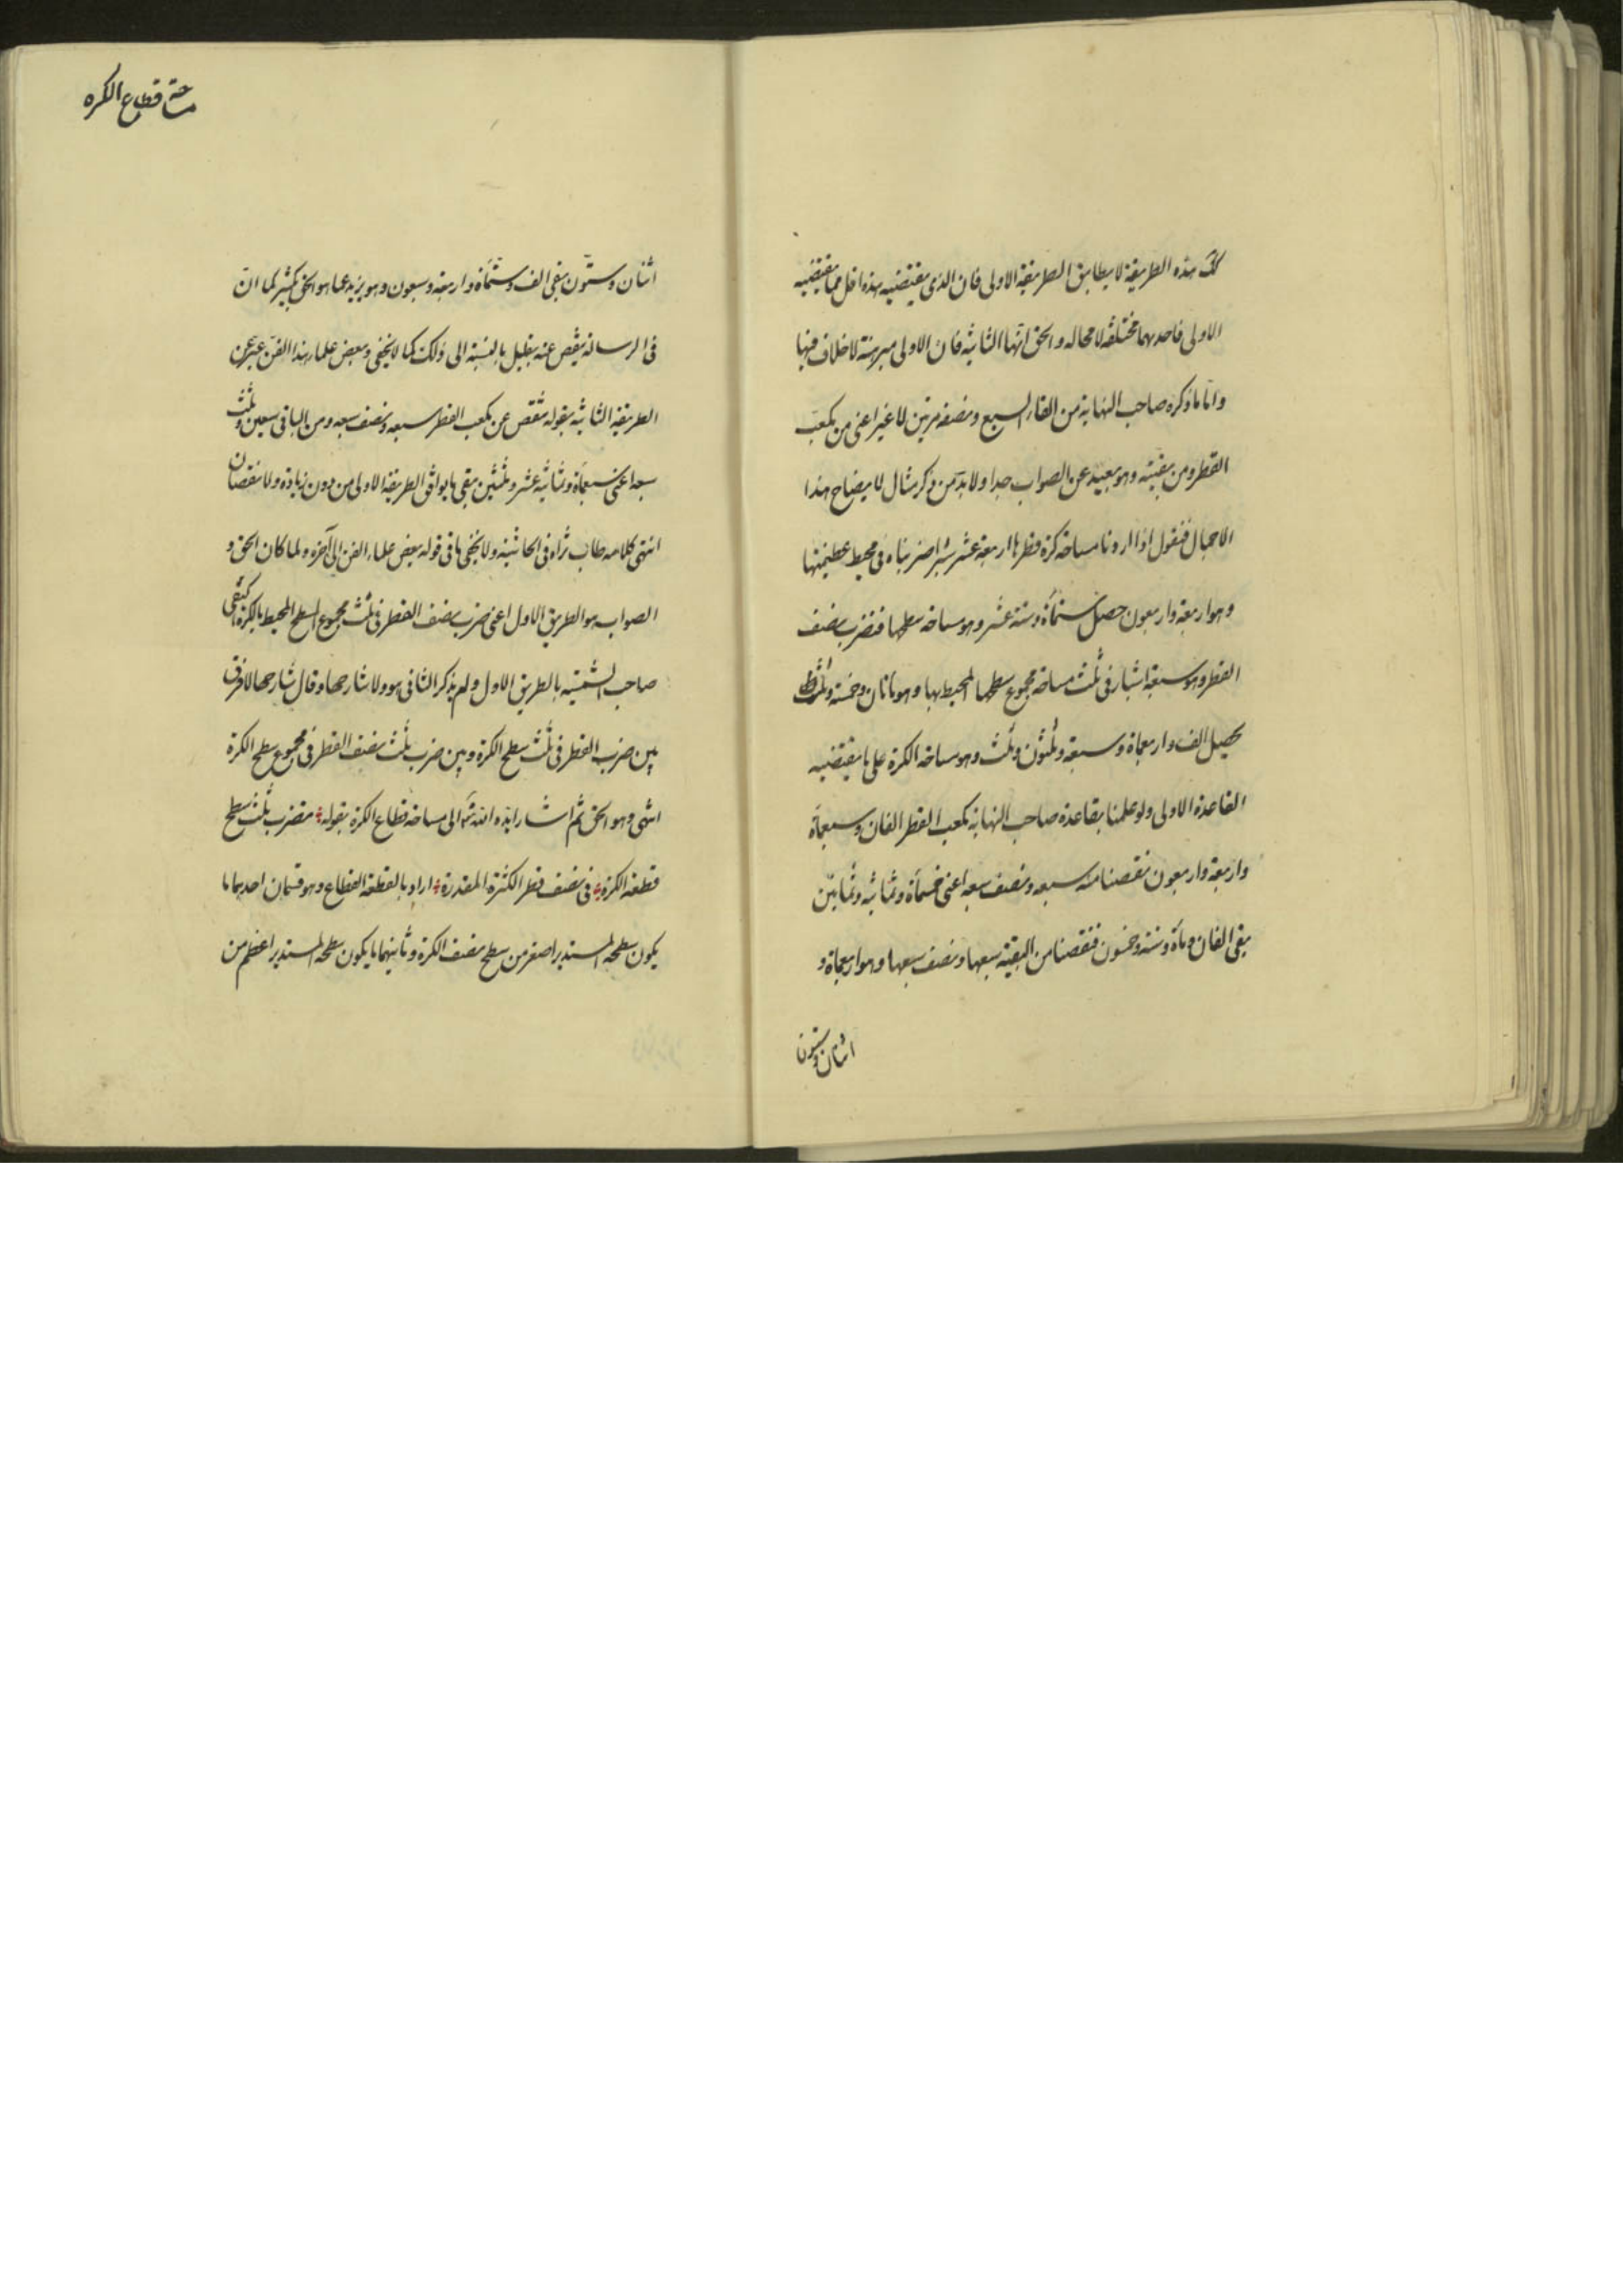 لك هذه الطريقة لا يطابق الطريقة الاولى فان الذى يقتضيه هذه اقل مما يقتضيه
الاولى فاحديهما مختلفة لا محاله والحق انها الثانية فان الاولى مبرهنة لا خلاف فيها
واما ما ذكره صاحب النهاية من القاء السبع ونصفه مرتين لا غير اعنى من مكعب
القطر ومن بقيته وهو بعيد عن الصواب جدا ولا بد من ذكر مثال لا يضاح هذا
الاجمال فنقول اذا اردنا مساحة كرة قطرها اربعة عشر شبرا ضربناه فى محيط عظيمتها
وهو اربعة واربعون حصل ستمأة وستة عشر وهو مساحة سطحها فنضرب نصف
القطر وهو سبعة اشبار فى ثلث مساحة مجموع سطحها المحيط بها وهو مائتان وخمسة وثلث
يحصل الف واربعمأة وسبعة وثلثون وثلث وهو مساحة الكرة على ما يقتضيه
القاعدة الاولى ولو علمنا بقاعدة صاحب النهاية مكعب القطر الفان وسبعمأة
واربعة واربعون نقصنا منه سبعه ونصف سبعه اعنى خمسمأة وثمانية وثمانين
بقى الفان ومأة وستة وخمسون فنقصنا من البقية سبعها ونصف سبعها وهو اربعمأة و
اثنان وستون
مساحة قطاع الكره
اثنان وستون بقى الف وستمأة واربعة وسبعون وهو يزيد عما هو الحق بكثير كما ان
فى الرسالة ينقص عنه بقليل بالنسبة الى ذلك كما لا يخفى وبعض علماء هذا الفن عبر عن
الطريقة الثانية بقوله تنقص من مكعب القطر سبعه ونصف سبعه ومن الباقى سبعين وثلث
سبعه اعنى سبعمأة وثمانية عشر وثلثين بقى ما يوافق الطريقة الاولى من دون زيادة ولا نقصان
انتهى كلامه طاب ثراه فى الحاشية ولا يخفى ما فى قوله بعض علماء الفن الى آخره ولما كان الحق و
الصواب هو الطريق الاول اعنى ضرب نصف القطر فى ثلث مجموع السطح المحيط بالكرة اكتفى
صاحب الشمسيه بالطريق الاول ولم يذكر الثانى هو ولا شارحها وقال شارحها لا فرق
بين ضرب القطر فى ثلث سطح الكرة وبين ضرب ثلث نصف القطر فى مجموع سطح الكرة
انتهى وهو الحق ثم اشار ايده الله تع الى مساحة قطاع الكرة بقوله فتضرب ثلث سطح
قطعة الكرة فى نصف قطر الكرة المقدرة اراد بالقطعة القطاع وهو قسمان احديهما ما
يكون سطحه المستدير اصغر من سطح نصف الكرة وثانيهما ما يكون سطحه المستدير اعظم من